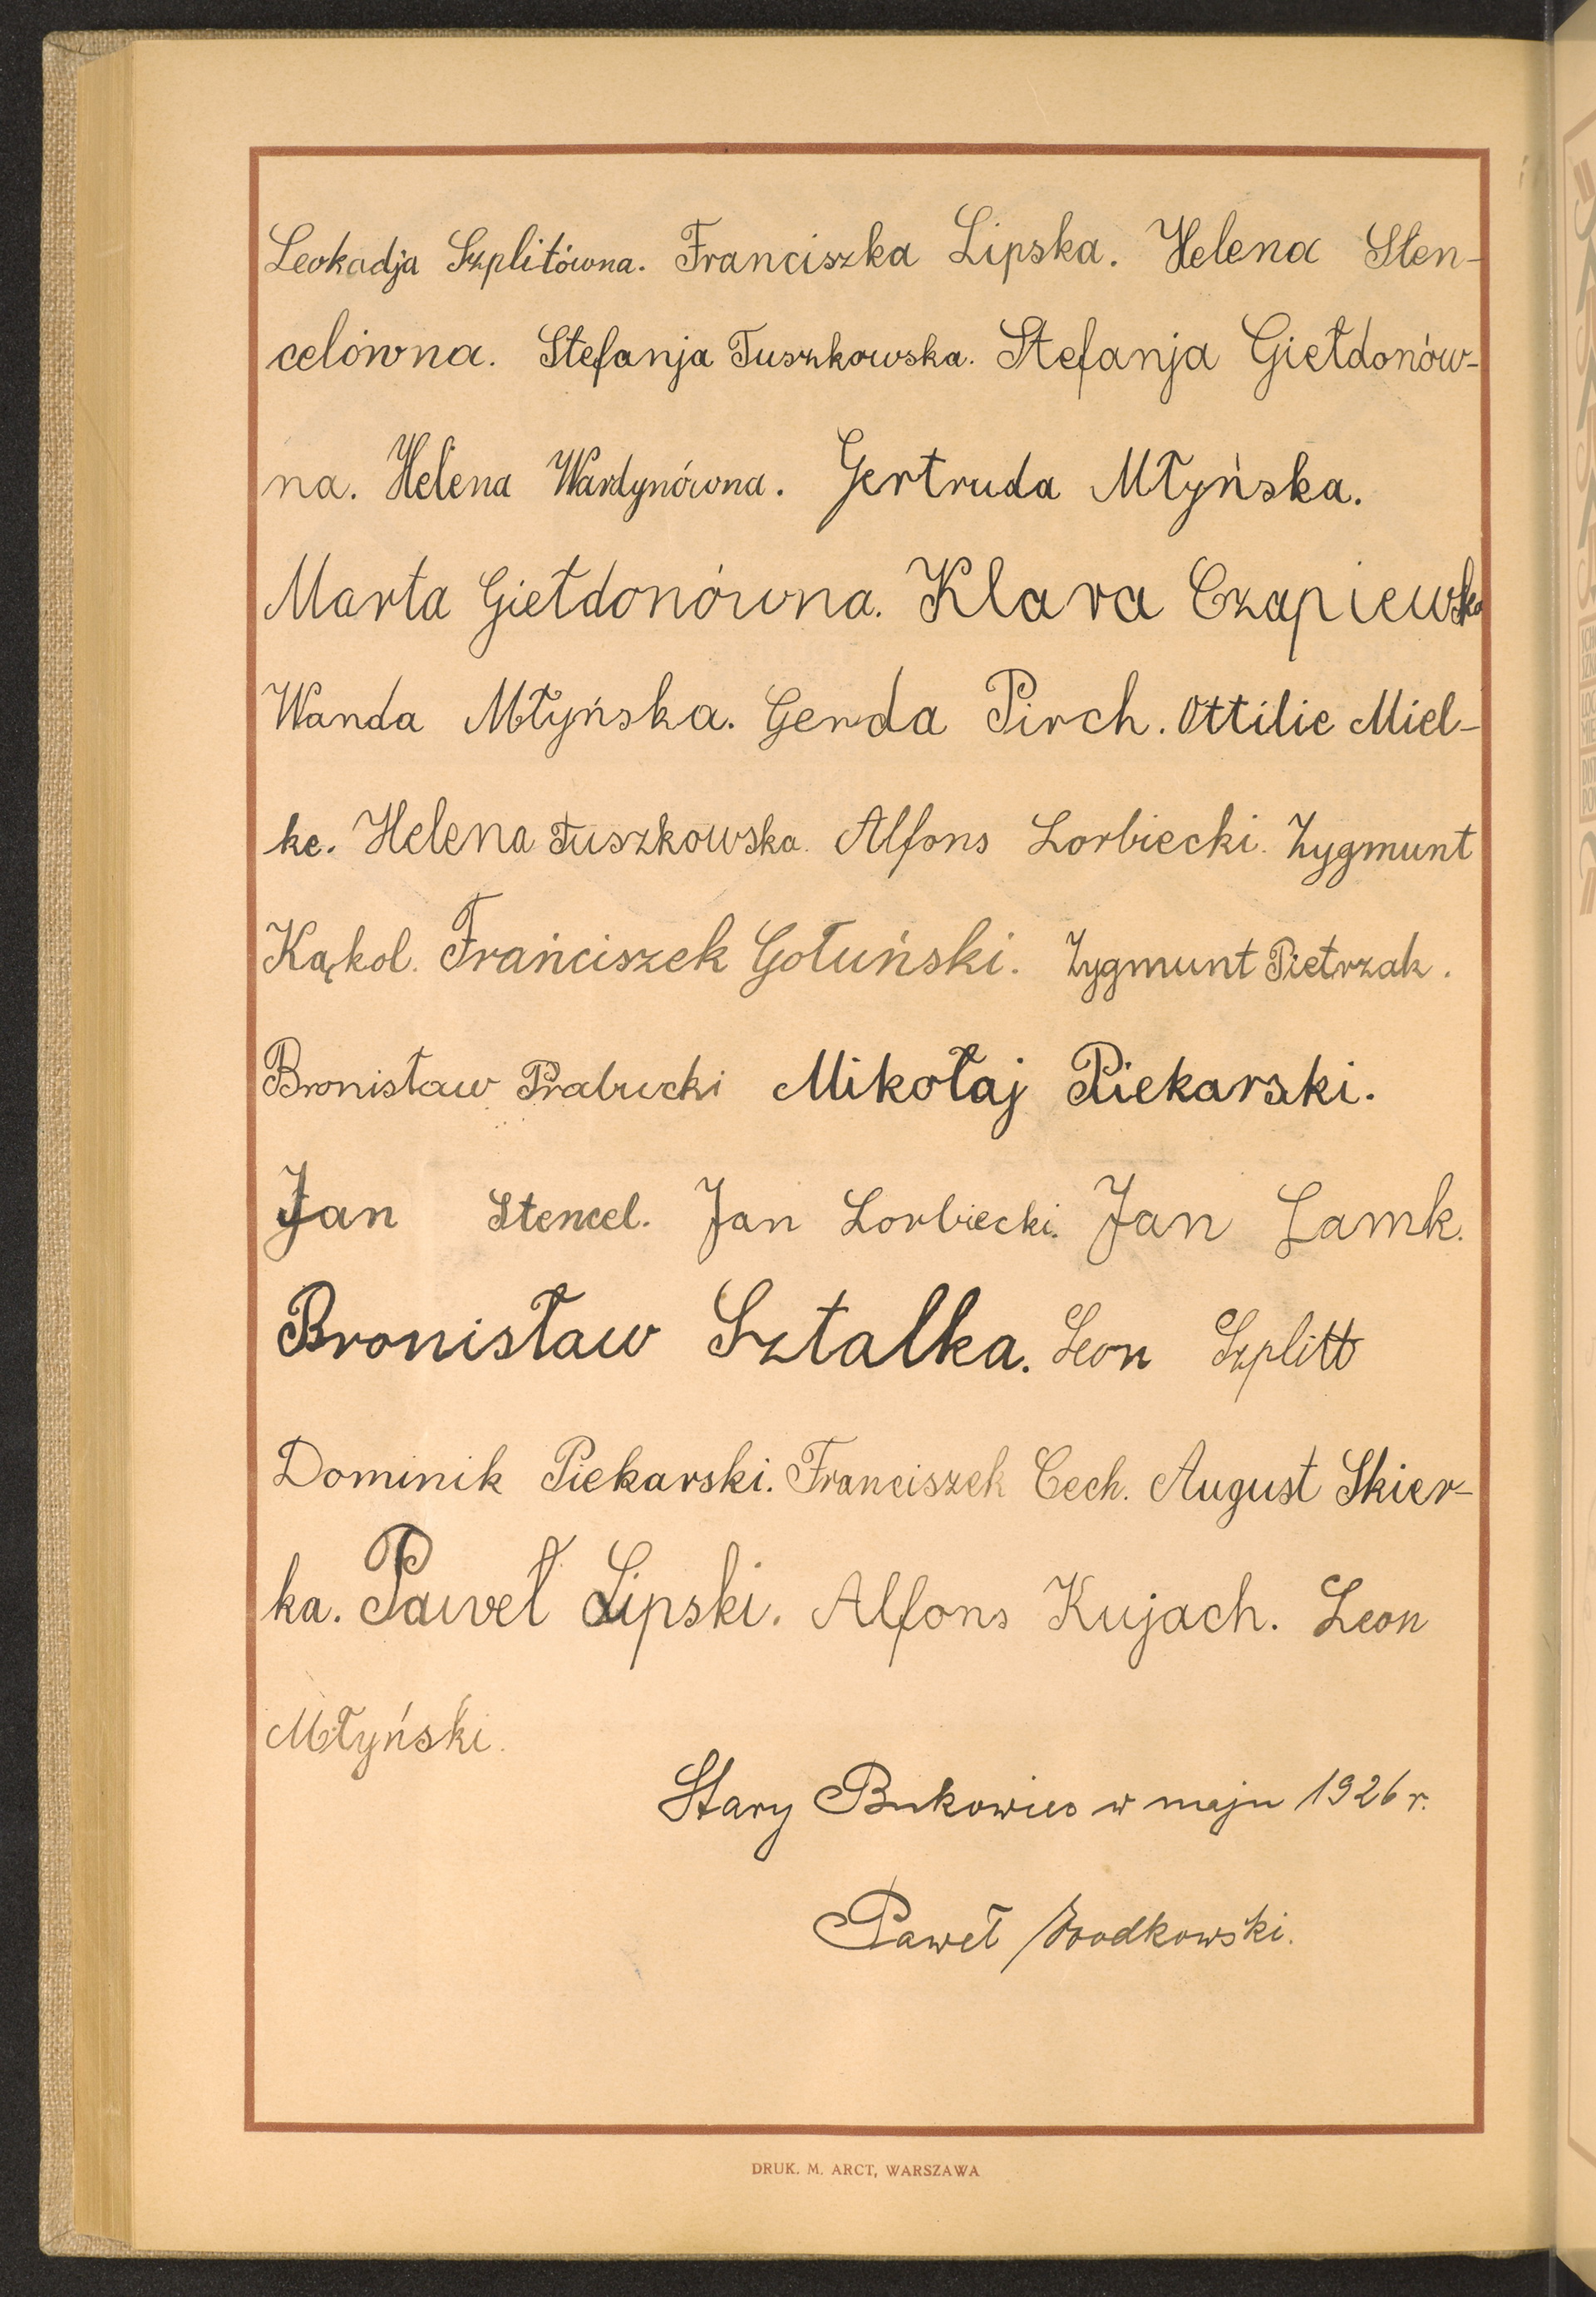 Leokadja Szplitówna. Franciszka Lipska. Helena Sten-
celówna. Stefanja Tuszkowska. Stefanja Giełdonów-
na. Helena Wardynówna. Gertruda Młyńska.
Marta Giełdonówna. Klara Czapiewska
Wanda Młyńska. Gerda Pirch. Ottilie Miel-
ke. Helena Tuszkowska. Alfons Lorbiecki. Zygmunt
Kąkol. Franciszek Gołuński. Zygmunt Pietrzak.
Bronisław Prabucki Mikołaj Piekarski.
Jan Stencel. Jan Lorbiecki. Jan Lamk.
Bronisław Sztalka. Leon Szplitt
Dominik Piekarski. Franciszek Cech. August Skier-
ka. Paweł Lipski. Alfons Kujach. Leon
Młyński.
Stary Bukowiec w maju 1926 r.
Paweł
DRUK. M. ARCT, WARSZAWA